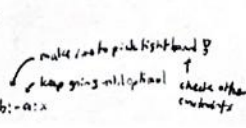 make sure to pick tight bound
keep going until optimal
check other
constraints
b:-a:x